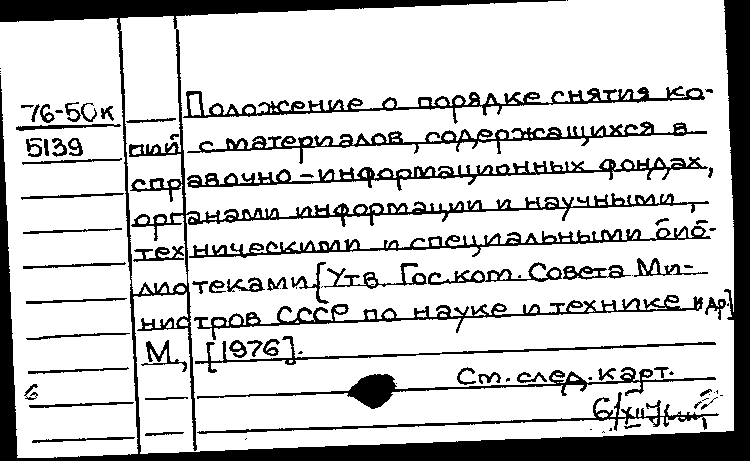 76-50к Положение о порядке снятия ко-
5139 пий с материалов, содержащихся в
справочно-информационных фондах,
органами информации и научными,
техническими и специальными биб-
лиотеками. [Утв. Гос. ком. Совета Ми-
нистров СССР по науке и технике и др.]
М., [1976].
См. след. карт.
6
6/XII